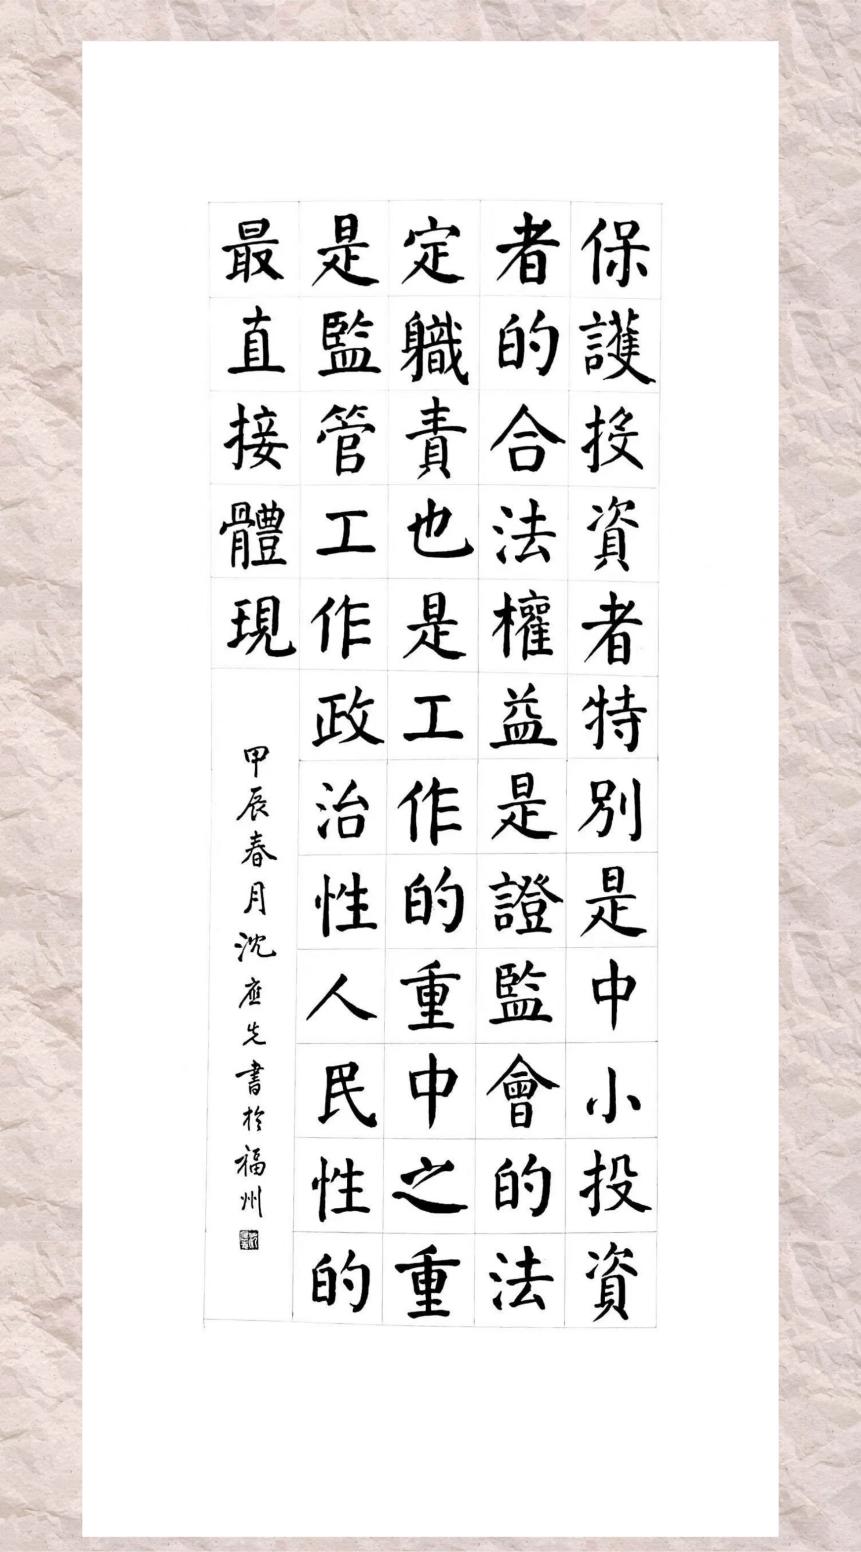 保護投資者特別是中小投資
者的合法權益是證監會的法
定職責也是工作的重中之重
是監管工作政治性人民性的
最直接體現
甲辰春月沈應先書於福州